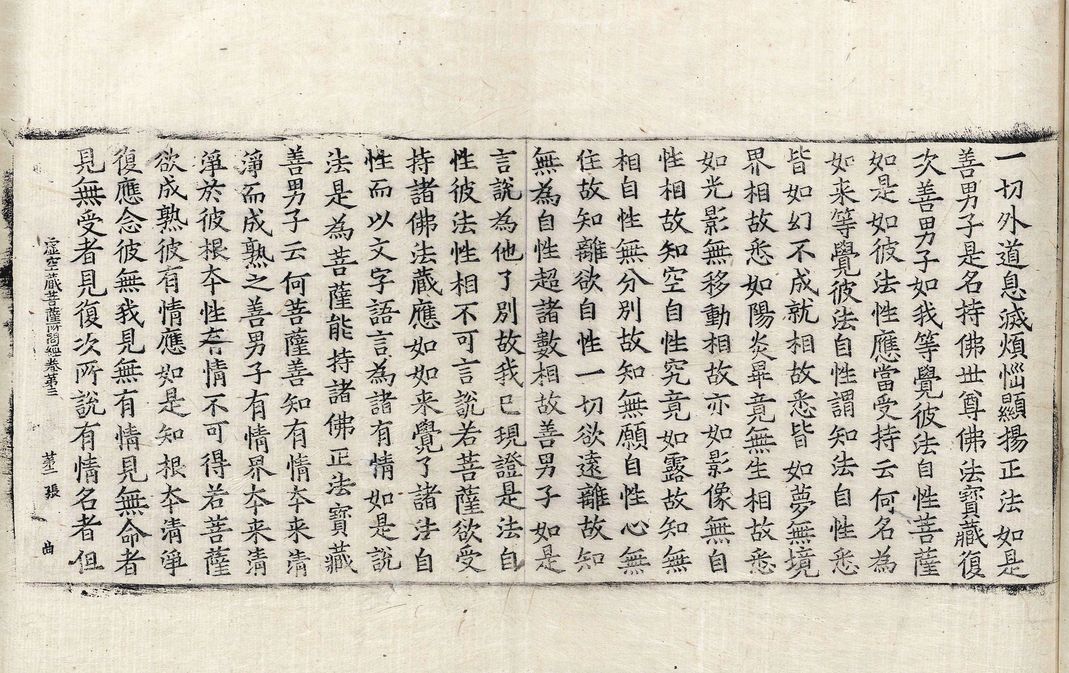 一切外道息滅煩惱顯揚正法如是
善男子是名持佛世尊佛法寶藏復
次善男子如我等覺彼法自性菩薩
如是如彼法性應當受持云何名為
如来等覺彼法自性謂知法自性悉
皆如幻不成就相故悉皆如夢無境
界相故悉如陽炎畢竟無生相故悉
如光影無移動相故亦如影像無自
性相故知空自性究竟如露故知無
相自性無分別故知無願自性心無
住故知離欲自性一切欲遠離故知
無為自性超諸數相故善男子如是
言說為他了別故我已現證是法自
性彼法性相不可言說若菩薩欲受
持諸佛法藏應如如来覺了諸法自
性而以文字語言為諸有情如是說
法是為菩薩能持諸佛正法寶藏
善男子云何菩薩善知有情夲来清
淨而成熟之善男子有情界夲来清
淨於彼根夲性有情不可得若菩薩
欲成熟彼有情應如是知根夲清淨
復應念彼無我見無有情見無命者
見無受者見復次所說有情名者但
虛空藏菩薩所問經卷第三 第二張 曲